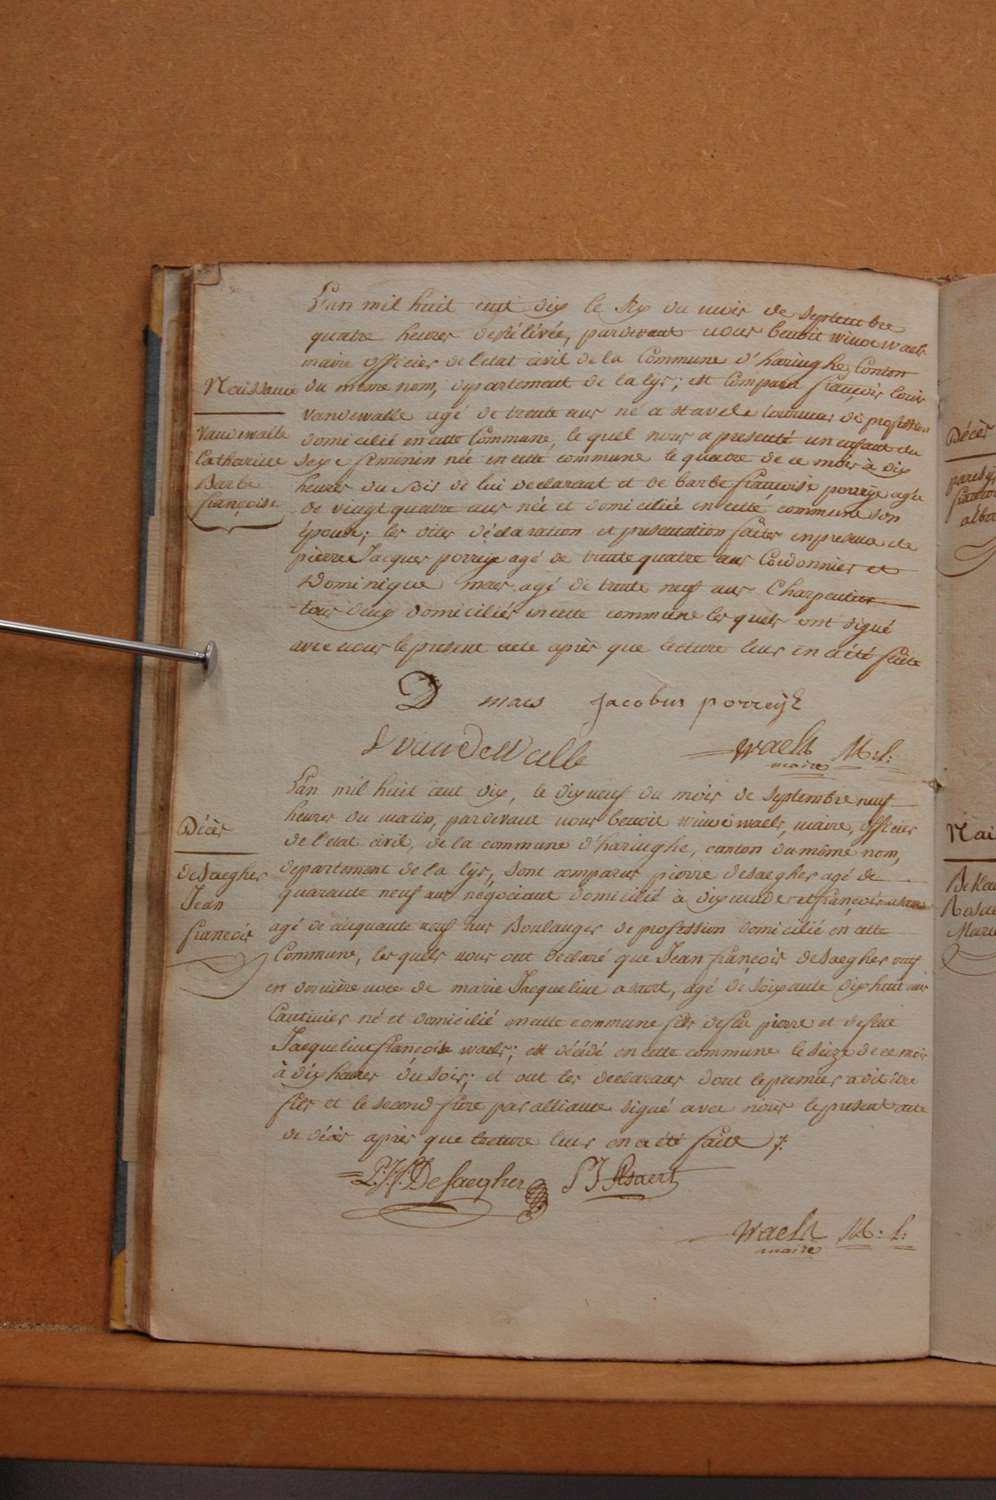 L'an mil huit cent dix le six du mois de septembre
quatre heures de rélévée, pardevant nous benoit winoc waels
maire officier de l'etat civil de la Commune d'haringhe Conton
du meme nom, departement de la lys; est Comparu françois louis
vandewalle agé de trente ans né a stavele tourneur de profession
domicilié en cette Commune, le quel nous a presenté un enfant du
sexe feminin née en cette commune le quatre de ce mois à dix
heures du soir de lui declarant et de barbe françoise porreye agée
de vingt quatre ans né et domicilié en cette commune son
épouse; les dites déclaration et presentation faites en presence de
pierre Jacques porreye agé de trente quatre ans Cordonnier et
Dominique mars agé de trente neuf ans Charpentier
tous deux domiciliés en cette commune les quels ont signé
avec nous le present acte après que lecture leur en a été faite
Naissance
vandewalle
Catharine
Barbe
françoise
D mars Jacobus porreye
vandeWalle
waels M: l:
maire
L'an mil huit cent dix, le dix neuf du mois de septembre neuf
heures du matin, pardevant nous benoit winoc waels, maire, officier
de l'etat civil, de la commune d'haringhe, canton du même nom,
departement de la lys, sont comparus pierre desaegher agé de
quarante neuf ans négociant domicilié à dixmude et françois
agé de cinquante neuf ans Boulanger de profession domicilié en cette
Commune, les quels nous ont declaré que Jean françois desaegher veuf
en derniere noce de marie Jacqueline asaert, agé de soixante dix huit ans
Cantinier né et domicilié en cette commune fils de feu pierre et de feue
Jacqueline françoise waels; est décédé en cette commune le seize de ce mois
à dix heures du soir; et ont les declarans dont le premier a dit être
fils et le second frere par alliance signé avec nous le present acte
de décès après que lecture leur en a été faite
Décès
desaegher
Jean
francois
P. J. Desaegher Asaert
waels M: l:
maire
Décès
Nai
Marie